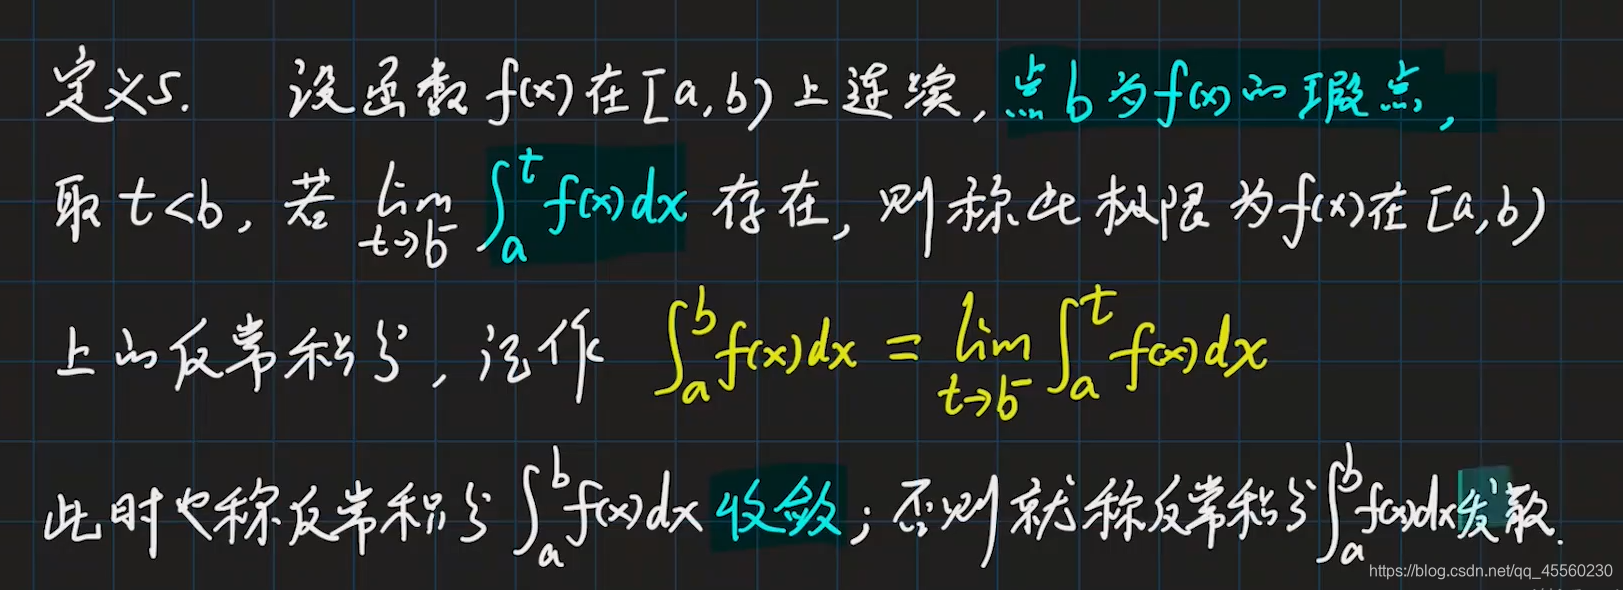 定义5. 设函数 f(x) 在 [a,b) 上连续, 点 b 为 f(x) 的瑕点,
取 t<b, 若 lim_{t→b⁻} ∫_a^t f(x)dx 存在, 则称此极限为 f(x) 在 [a,b)
上的反常积分, 记作 ∫_a^b f(x)dx = lim_{t→b⁻} ∫_a^t f(x)dx
此时也称反常积分 ∫_a^b f(x)dx 收敛; 否则就称反常积分 ∫_a^b f(x)dx 发散.
https://blog.csdn.net/qq_45560230